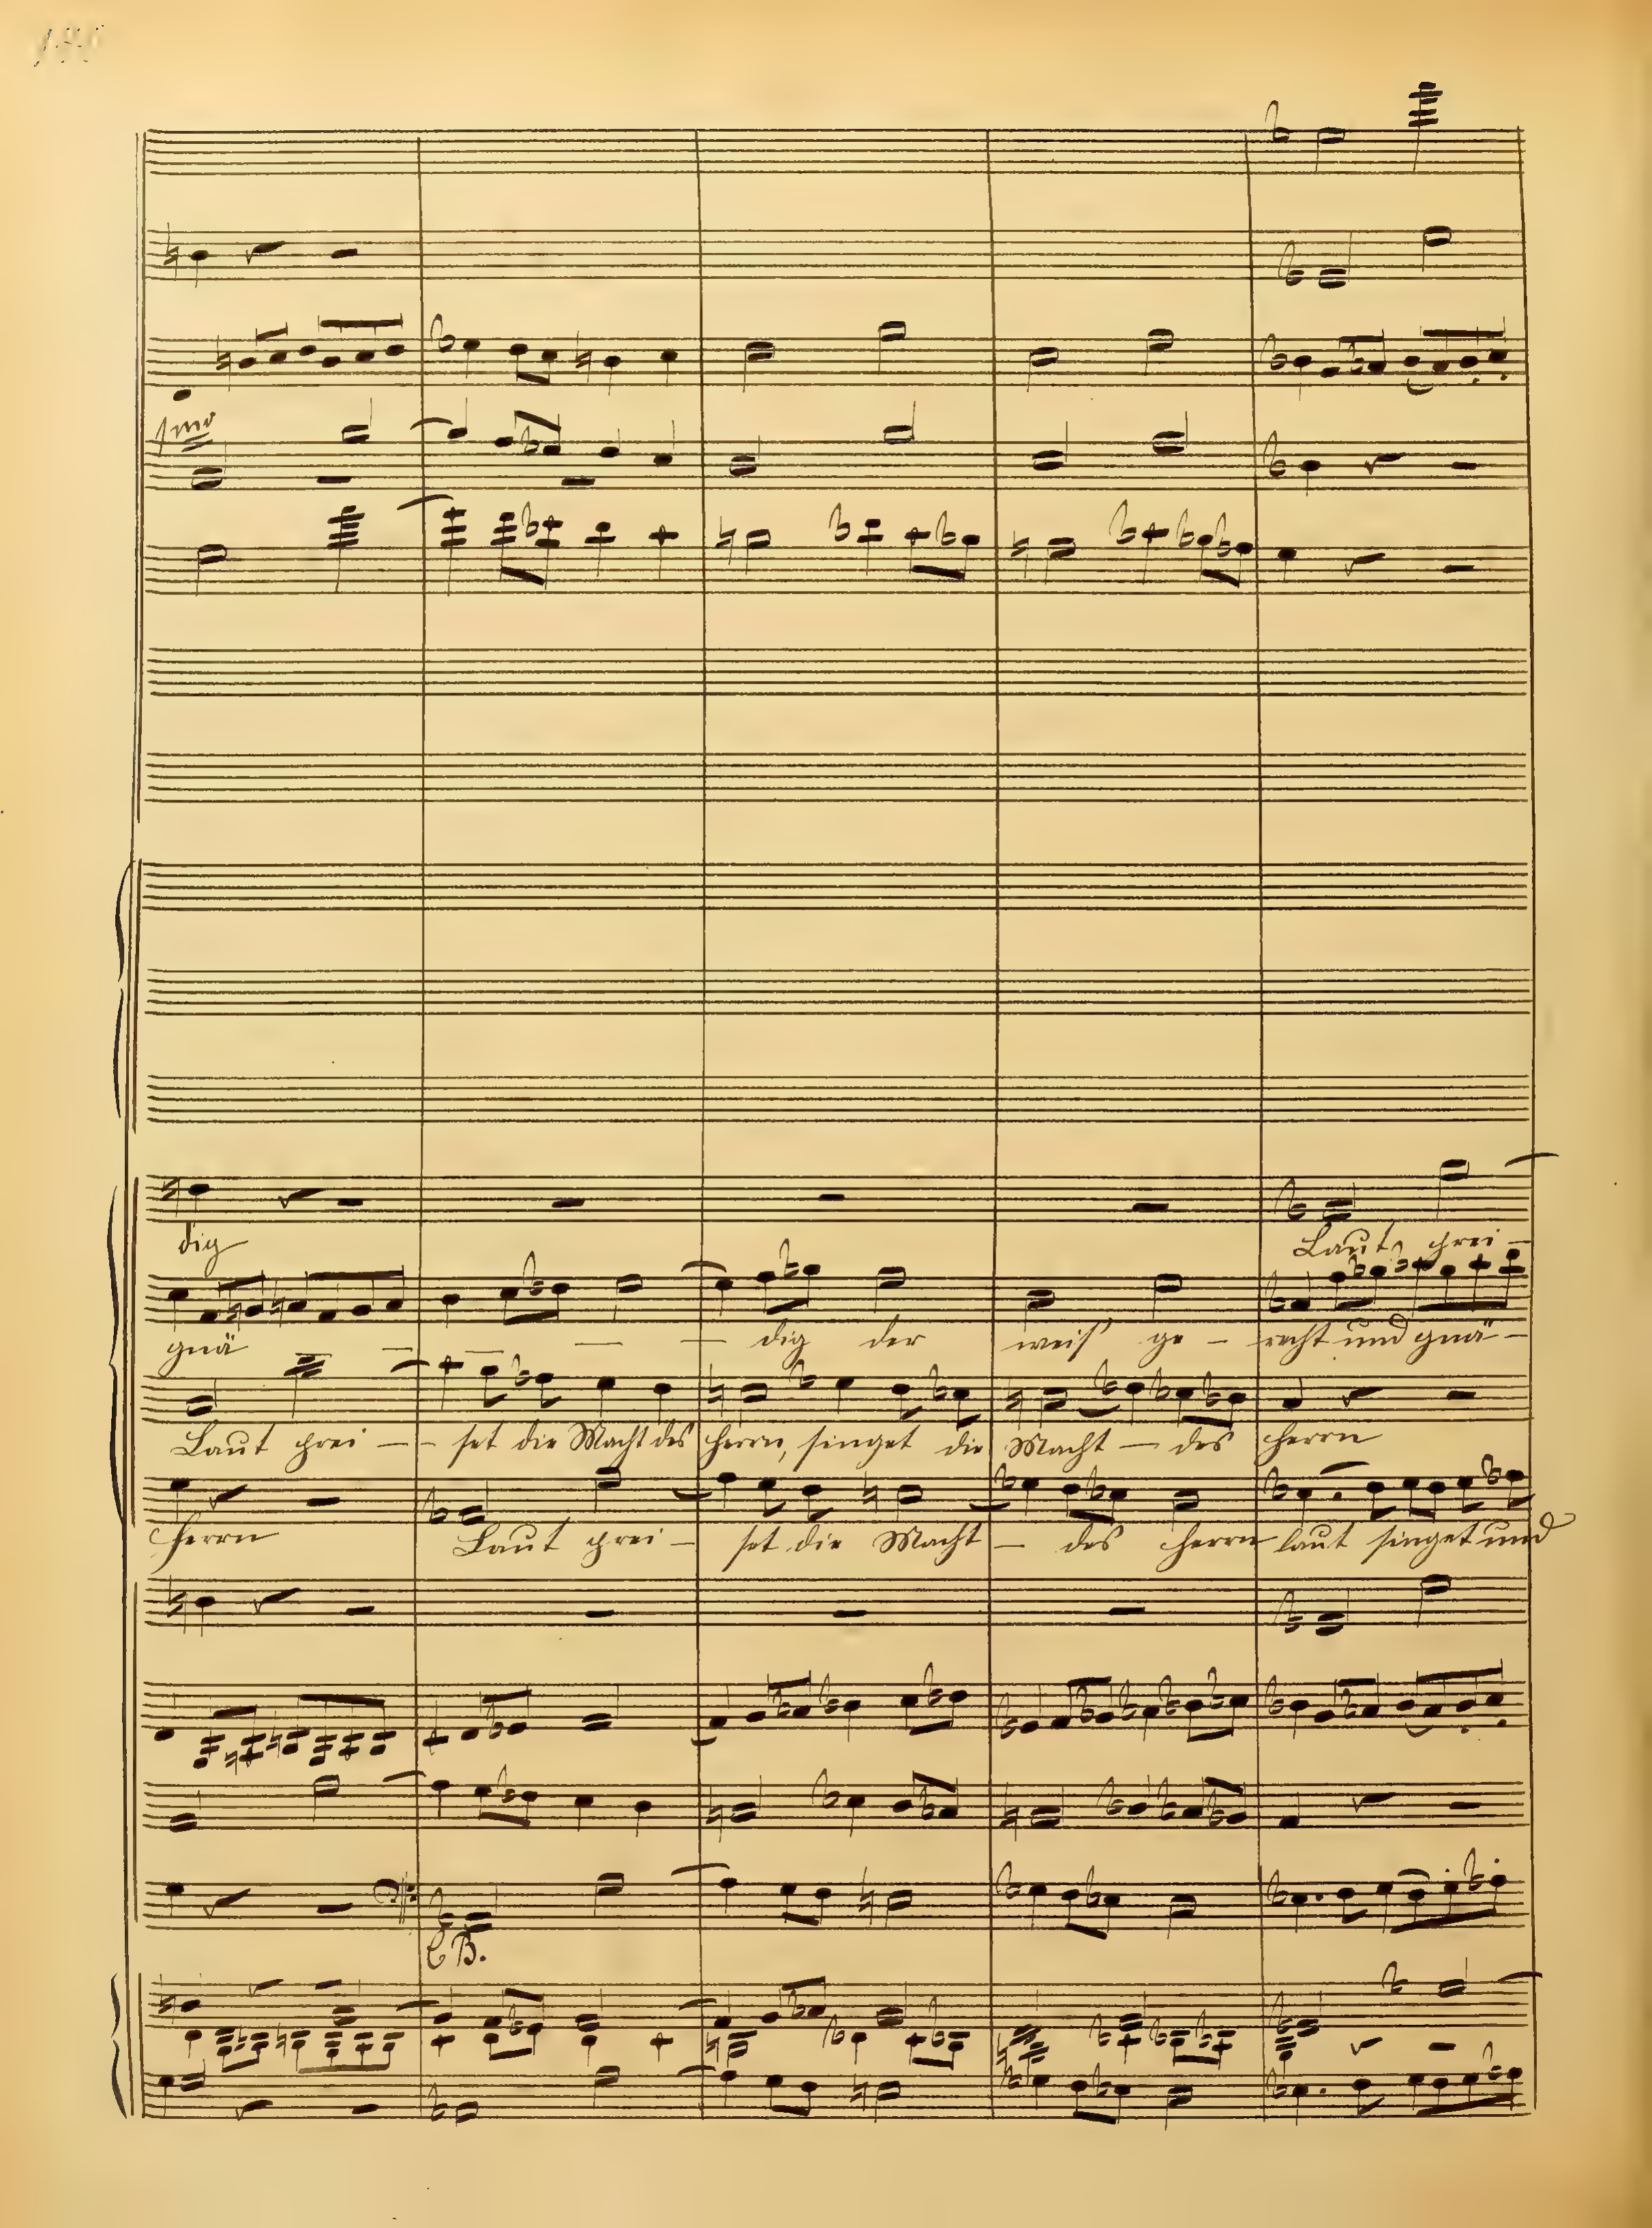 1mo
dig
Laut prei-
gnä - - - dig der weis' ge - recht und gnä -
Laut prei - - set die Macht des Herrn, singet die Macht - des Herrn
Herrn Laut prei - set die Macht - des Herrn laut singet und
C B.